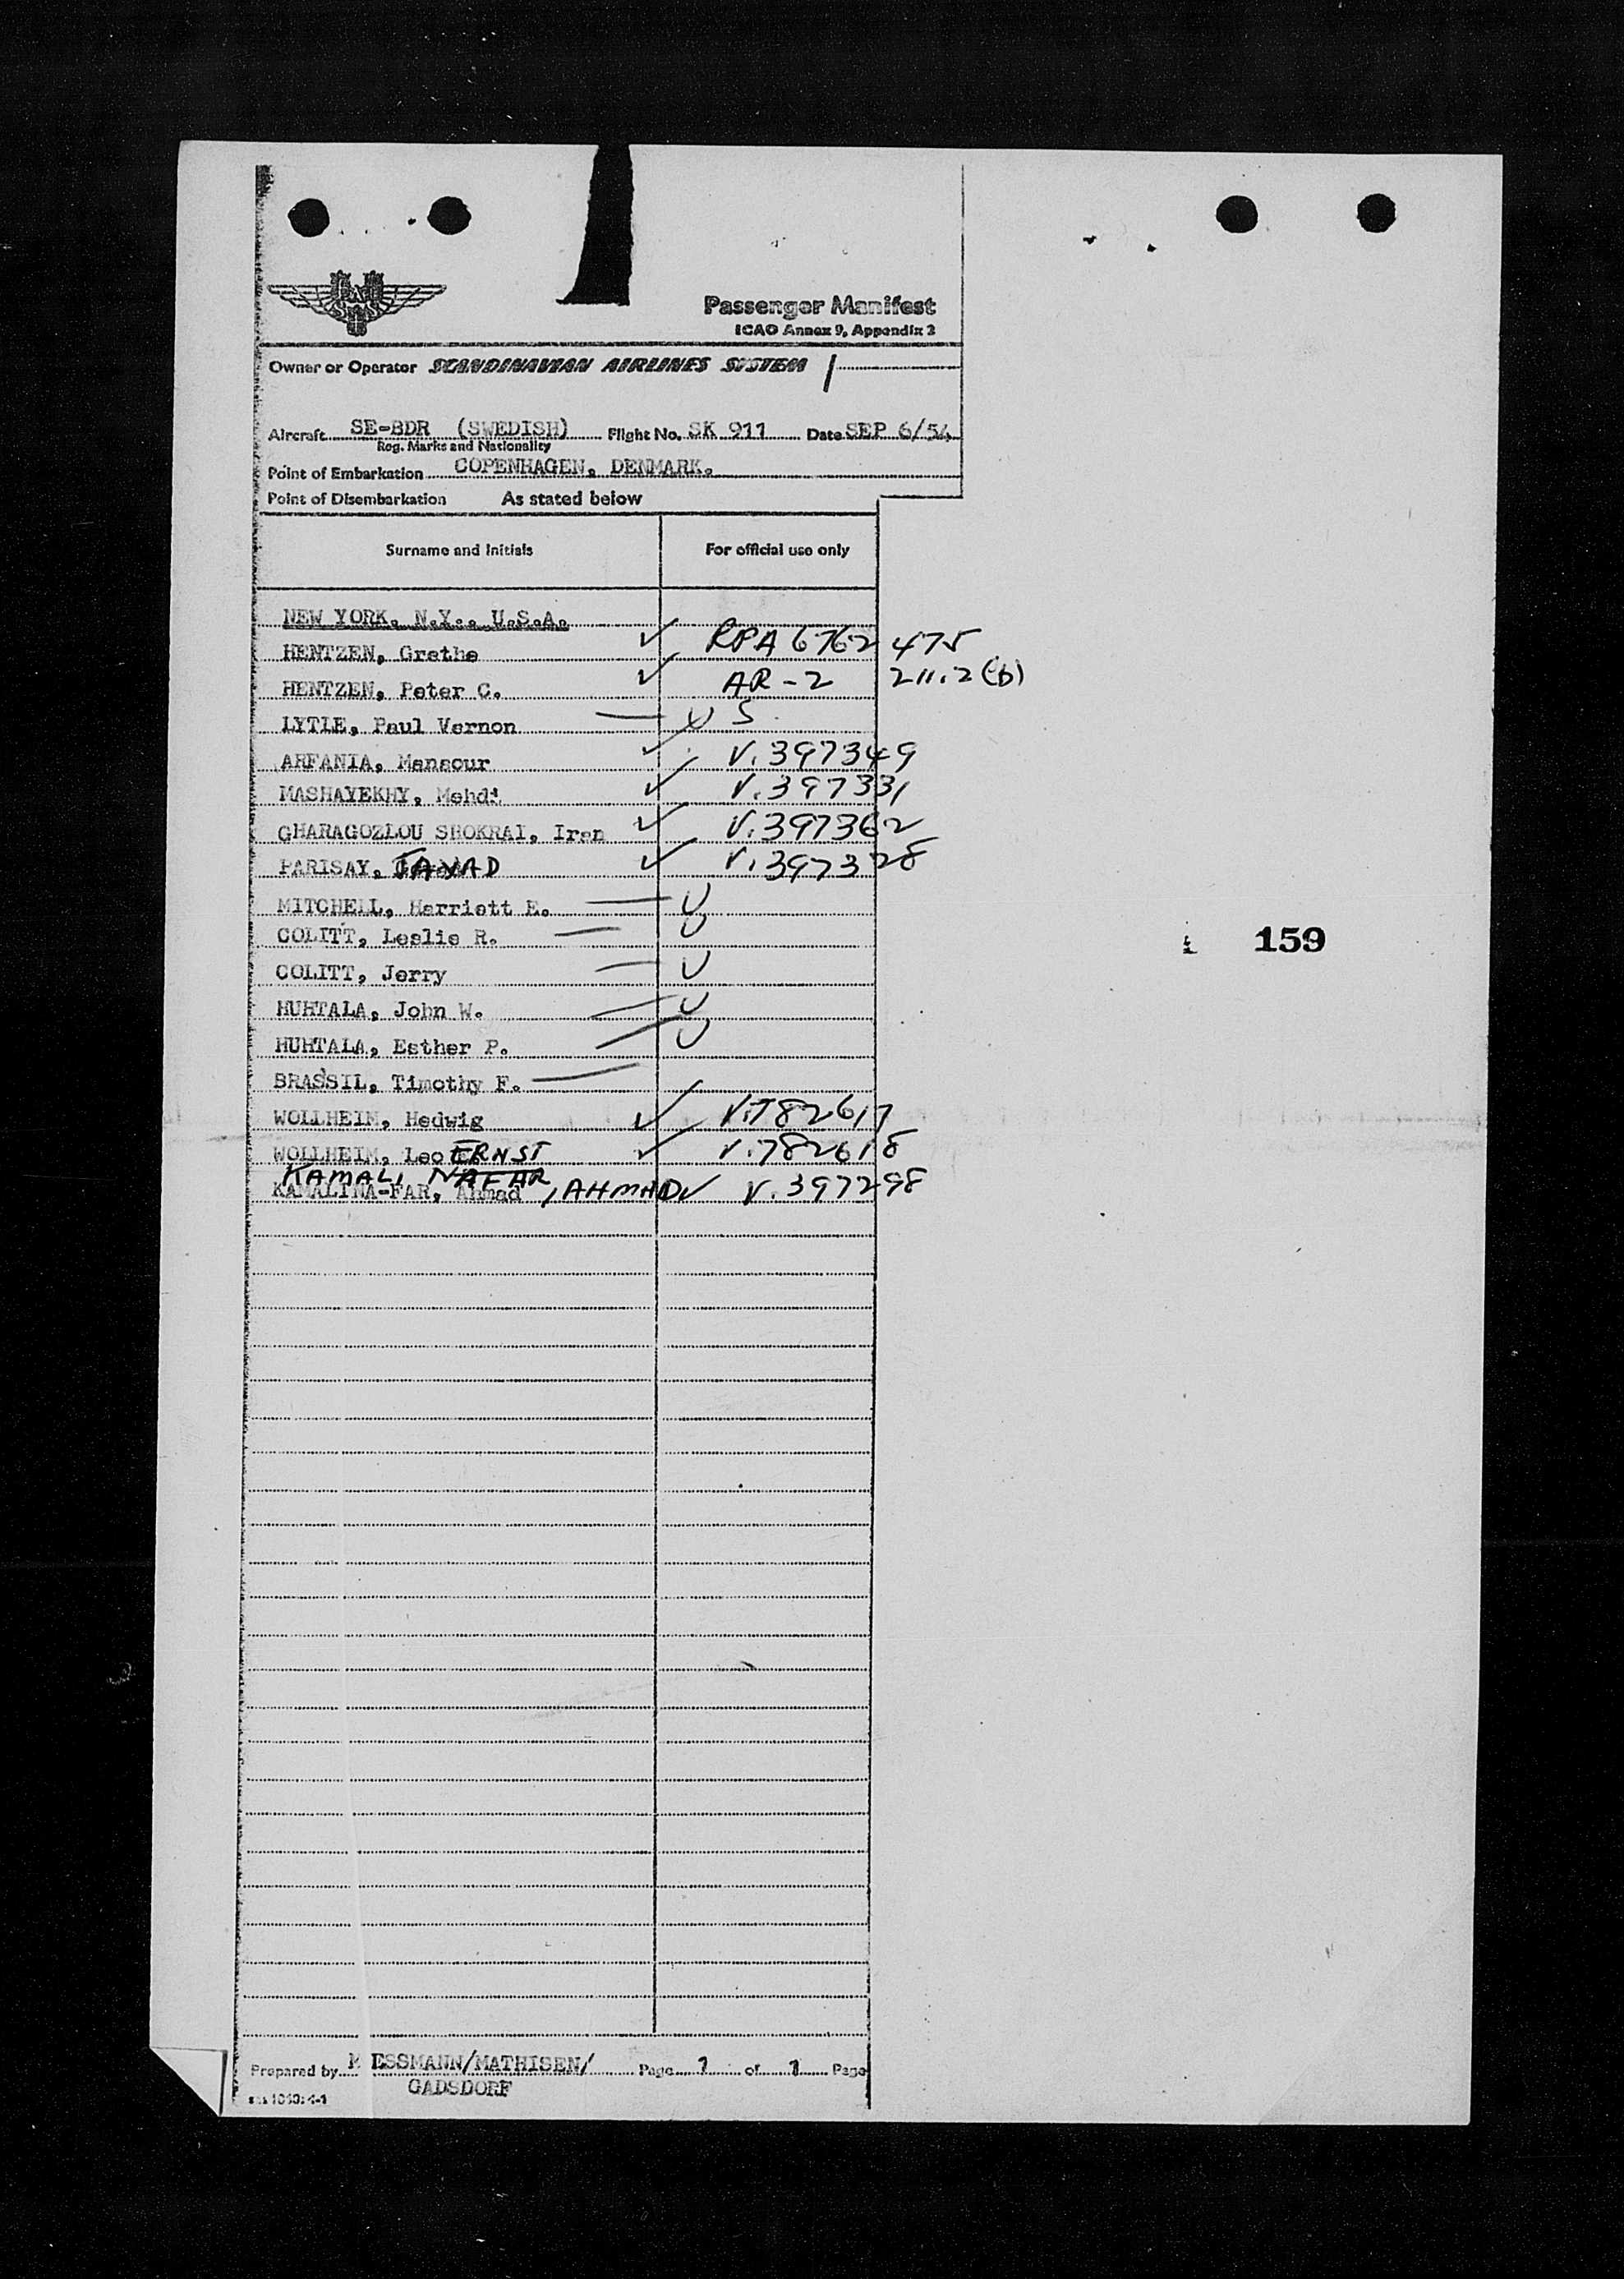 Passenger Manifest
ICAO Annex 9, Appendix 2
Owner or Operator SCANDINAVIAN AIRLINES SYSTEM
Aircraft SE-BDR (SWEDISH) Flight No. SK 911 Date SEP 6/54
Reg. Marks and Nationality
Point of Embarkation COPENHAGEN, DENMARK.
Point of Disembarkation As stated below
Surname and Initials For official use only
NEW YORK, N.Y., U.S.A.
HENTZEN, Grethe ✓ RPA 6762 475
HENTZEN, Peter C. ✓ AR-2 211.2(b)
LYTLE, Paul Vernon — U S.
ARFANIA, Mansour ✓ V.397349
MASHAYEKHY, Mehdi ✓ V.397331
GHARAGOZLOU SHOKRAI, Iran ✓ V.397362
PARISAY, JAVAD ✓ V.397328
MITCHELL, Harriett E. — U
COLITT, Leslie R. — U
COLITT, Jerry — U
159
HUHTALA, John W. — U
HUHTALA, Esther P. — U
BRASSIL, Timothy F. —
WOLLHEIM, Hedwig ✓ V.782617
WOLLHEIM, Leo ERNST ✓ V.782618
KAMALI NAFAR
KAMALINA-FAR, Ahmad , AHMAD ✓ V.397298
Prepared by ESSMANN/MATHISEN/ Page 1 of 1 Page
GADSDORF